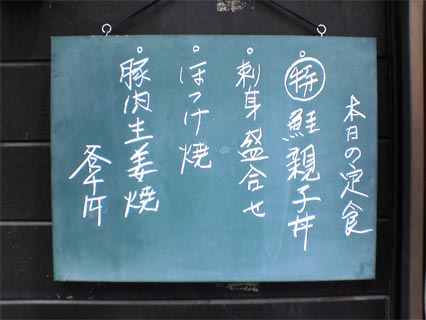 本日の定食
特 鮭親子丼
刺身盛合せ
ほっけ焼
豚肉生姜焼
各千円